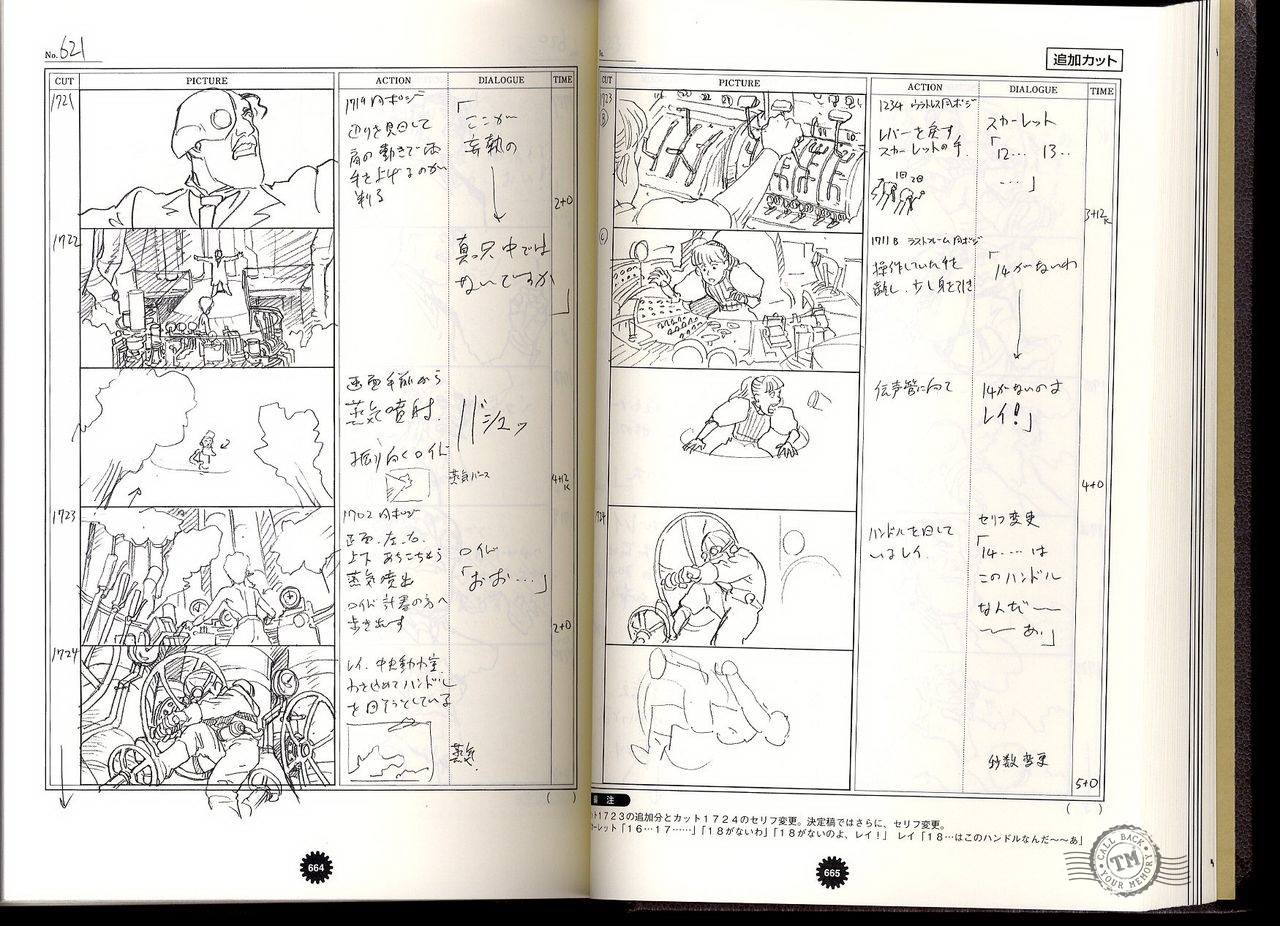 No. 621
CUT PICTURE ACTION DIALOGUE TIME
1721
1719 同ポジ
辺りを見回して
肩の動きで両
手を上げるのが
判る
「ここが
妄執の
2+0
1722
真只中では
ないですか
」
画面手前から
蒸気噴射
バシュッ
振り向くロイド
蒸気バース
4+12
K
1723
1702 同ポジ
正面、左、右、
上下 あちこちから
蒸気噴出
ロイド計器の方へ
歩き出す
ロイド
「おお…」
2+0
1724
レイ、中央動力室
わきやめてハンドル
を回そうとしている
蒸気
( )
664
追加カット
No.
CUT PICTURE ACTION DIALOGUE TIME
1723
B
1234 ラストレス同ポジ
レバーを戻す
スカーレットの手
1回 2回
スカーレット
「12… 13‥
…」
3+12
K
C
1711B ラストフレーム同ポジ
操作していた手を
離し、少し身を引き
「14がないわ
伝声管に向て
14がないのよ
レイ!」
4+0
1724
ハンドルを回して
いるレイ
セリフ変更
「14‥‥は
このハンドル
なんだ〜〜
〜〜あ」
秒数変更
5+0
( )
備 注
カット1723の追加分とカット1724のセリフ変更。決定稿ではさらに、セリフ変更。
スカーレット「16…17……」「18がないわ」「18がないのよ、レイ!」 レイ「18…はこのハンドルなんだ〜〜あ」
665
CALL BACK
TM
YOUR MEMORY